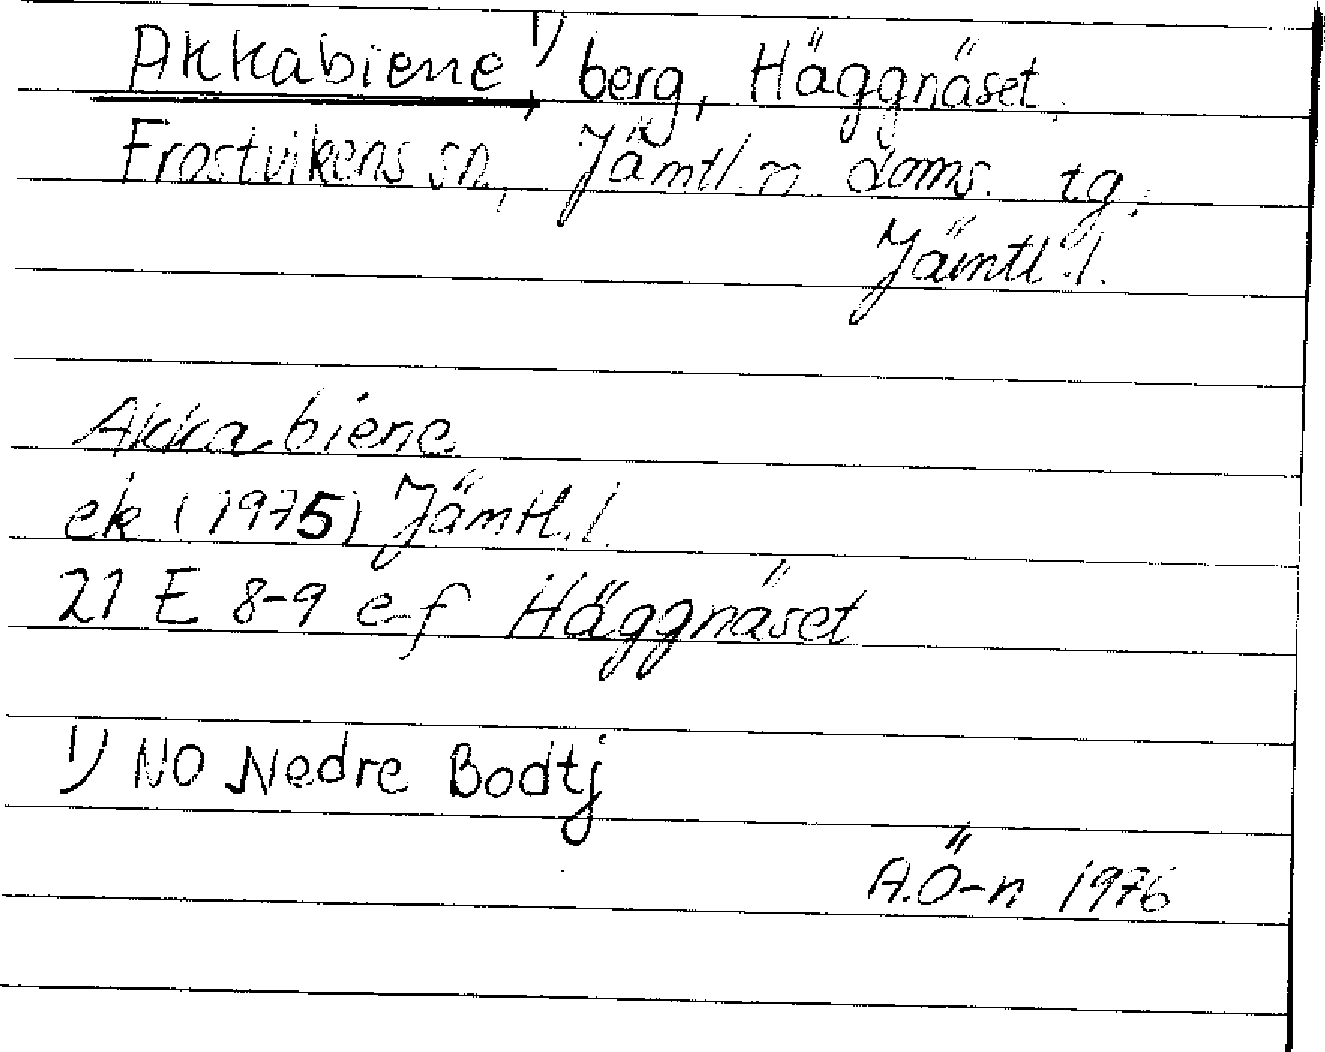 Akkabiene, 1) berg, Häggnäset
Frostvikens sn, Jämtl. n. doms. tg.
Jämtl. l.
Akkabiene
ek (1975) Jämtl. l.
21 E 8-9 e-f Häggnäset
1) NO Nedre Bodtj
A.Ö-n 1976